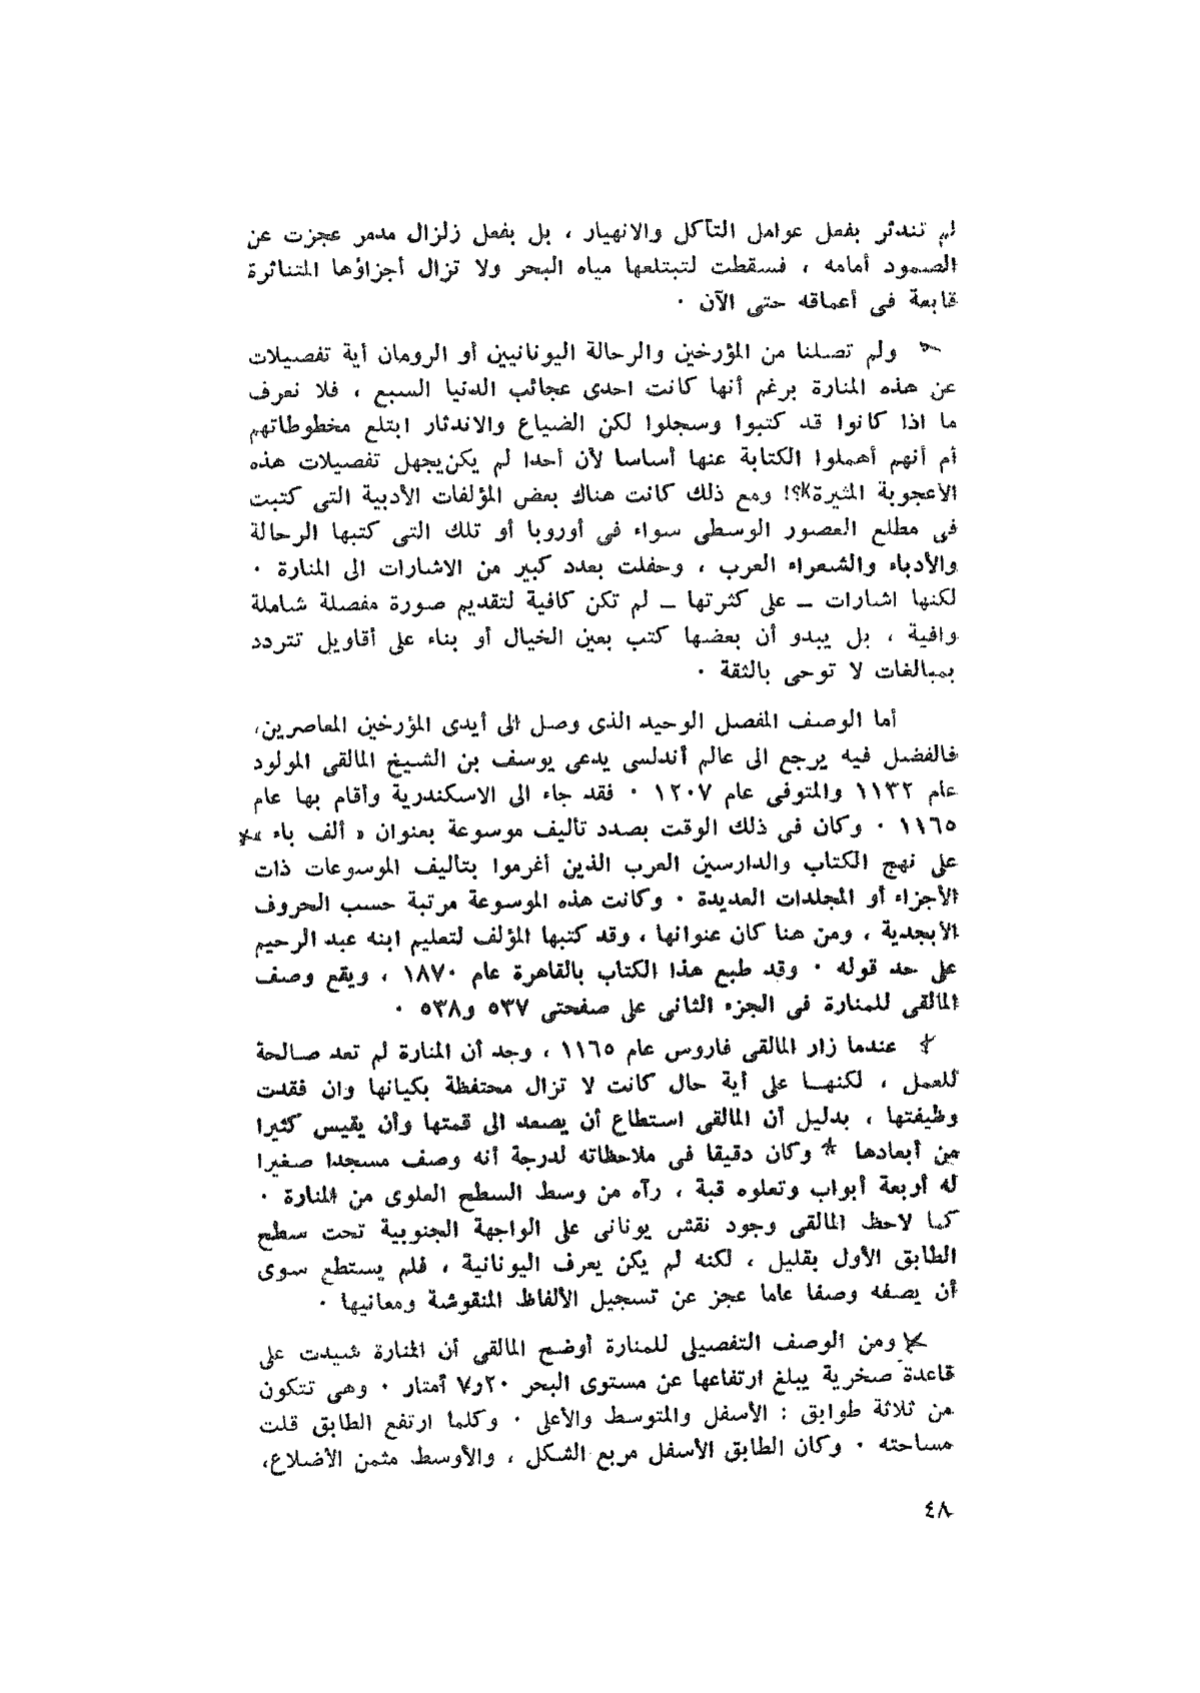 لم تندثر بفعل عوامل التآكل والانهيار ، بل بفعل زلزال مدمر عجزت عن
الصمود أمامه ، فسقطت لتبتلعها مياه البحر ولا تزال أجزاؤها المتناثرة
قابعة فى أعماقه حتى الآن ٠
ولم تصلنا من المؤرخين والرحالة اليونانيين أو الرومان أية تفصيلات
عن هذه المنارة برغم أنها كانت احدى عجائب الدنيا السبع ، فلا نعرف
ما اذا كانوا قد كتبوا وسجلوا لكن الضياع والاندثار ابتلع مخطوطاتهم
أم أنهم أهملوا الكتابة عنها أساسا لأن أحدا لم يكن يجهل تفصيلات هذه
الأعجوبة المثيرة؟! ومع ذلك كانت هناك بعض المؤلفات الأدبية التى كتبت
فى مطلع العصور الوسطى سواء فى أوروبا أو تلك التى كتبها الرحالة
والأدباء والشعراء العرب ، وحفلت بعدد كبير من الاشارات الى المنارة ٠
لكنها اشارات – على كثرتها – لم تكن كافية لتقديم صورة مفصلة شاملة
وافية ، بل يبدو أن بعضها كتب بعين الخيال أو بناء على أقاويل تتردد
بمبالغات لا توحى بالثقة ٠
أما الوصف المفصل الوحيد الذى وصل الى أيدى المؤرخين المعاصرين،
فالفضل فيه يرجع الى عالم أندلسى يدعى يوسف بن الشيخ المالقى المولود
عام ١١٣٢ والمتوفى عام ١٢٠٧ ٠ فقد جاء الى الاسكندرية وأقام بها عام
١١٦٥ ٠ وكان فى ذلك الوقت بصدد تأليف موسوعة بعنوان « ألف باء »
على نهج الكتاب والدارسين العرب الذين أغرموا بتأليف الموسوعات ذات
الأجزاء أو المجلدات العديدة ٠ وكانت هذه الموسوعة مرتبة حسب الحروف
الأبجدية ، ومن هنا كان عنوانها ، وقد كتبها المؤلف لتعليم ابنه عبد الرحيم
على حد قوله ٠ وقد طبع هذا الكتاب بالقاهرة عام ١٨٧٠ ، ويقع وصف
المالقى للمنارة فى الجزء الثانى على صفحتى ٥٣٧ و٥٣٨ ٠
عندما زار المالقى فاروس عام ١١٦٥ ، وجد أن المنارة لم تعد صالحة
للعمل ، لكنها على أية حال كانت لا تزال محتفظة بكيانها وان فقدت
وظيفتها ، بدليل أن المالقى استطاع أن يصعد الى قمتها وأن يقيس كثيرا
من أبعادها * وكان دقيقا فى ملاحظاته لدرجة أنه وصف مسجدا صغيرا
له أربعة أبواب وتعلوه قبة ، رآه من وسط السطح العلوى من المنارة ٠
كما لاحظ المالقى وجود نقش يونانى على الواجهة الجنوبية تحت سطح
الطابق الأول بقليل ، لكنه لم يكن يعرف اليونانية ، فلم يستطع سوى
أن يصفه وصفا عاما عجز عن تسجيل الألفاظ المنقوشة ومعانيها ٠
ومن الوصف التفصيلى للمنارة أوضح المالقى أن المنارة شيدت على
قاعدة صخرية يبلغ ارتفاعها عن مستوى البحر ٧ر٢٠ أمتار ٠ وهى تتكون
من ثلاثة طوابق : الأسفل والمتوسط والأعلى ٠ وكلما ارتفع الطابق قلت
مساحته ٠ وكان الطابق الأسفل مربع الشكل ، والأوسط مثمن الأضلاع،
٤٨